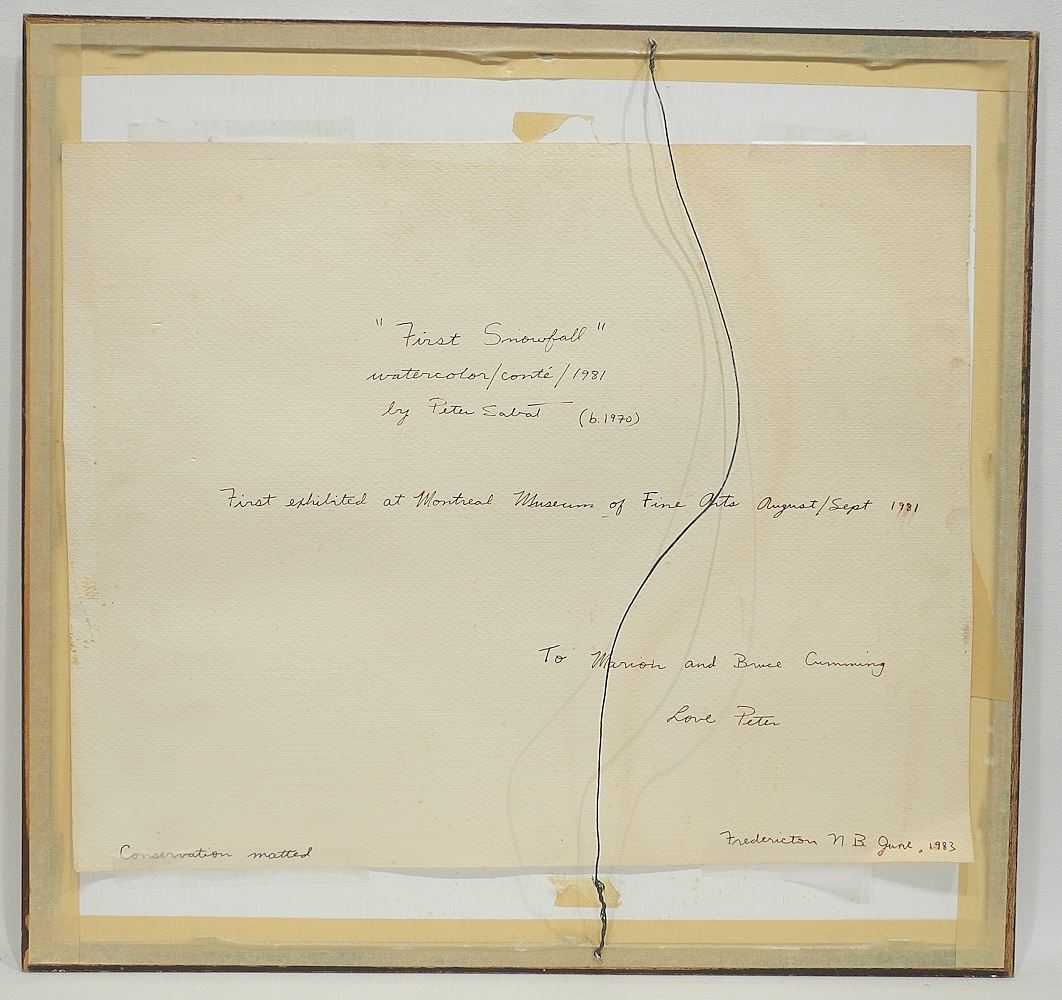 "First Snowfall"
watercolor/conté/1981
by Peter Sabat (b.1970)
First exhibited at Montreal Museum of Fine Arts August/Sept 1981
To Marion and Bruce Cumming
Love Peter
Fredericton N.B. June, 1983
Conservation matted